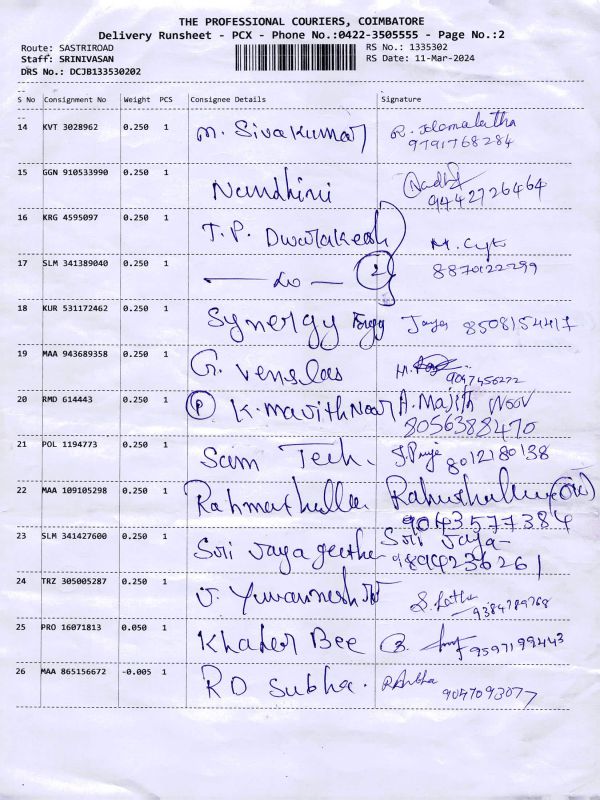 THE PROFESSIONAL COURIERS, COIMBATORE
Delivery Runsheet - PCX - Phone No.:0422-3505555 - Page No.:2
Route: SASTRIROAD RS No.: 1335302
Staff: SRINIVASAN RS Date: 11-Mar-2024
DRS No.: DCJB133530202
S No Consignment No Weight PCS Consignee Details Signature
14 KVT 3028962 0.250 1 M. Sivakumar
9791768284
15 GGN 910533990 0.250 1 Nandhini
9442726464
16 KRG 4595097 0.250 1 T.P. Dwarakesh
17 SLM 341389040 0.250 1 — do — 2 8870122299
18 KUR 531172462 0.250 1 Synergy Jaya 8508154417
19 MAA 943689358 0.250 1 G. Venslas M.
9047456272
20 RMD 614443 0.250 1 P K. Mavith Noor A. Majith Noor
8056388470
21 POL 1194773 0.250 1 Sam Tech. 8012180138
22 MAA 109105298 0.250 1 Rahmathulla
9043577384
23 SLM 341427600 0.250 1 Sri Jaya geetha Sri Jaya-
9894236261
24 TRZ 305005287 0.250 1 S. Latha
9384789768
25 PRO 16071813 0.050 1 Khader Bee B. 9597199443
26 MAA 865156672 -0.005 1 R D Subha.
9047093077